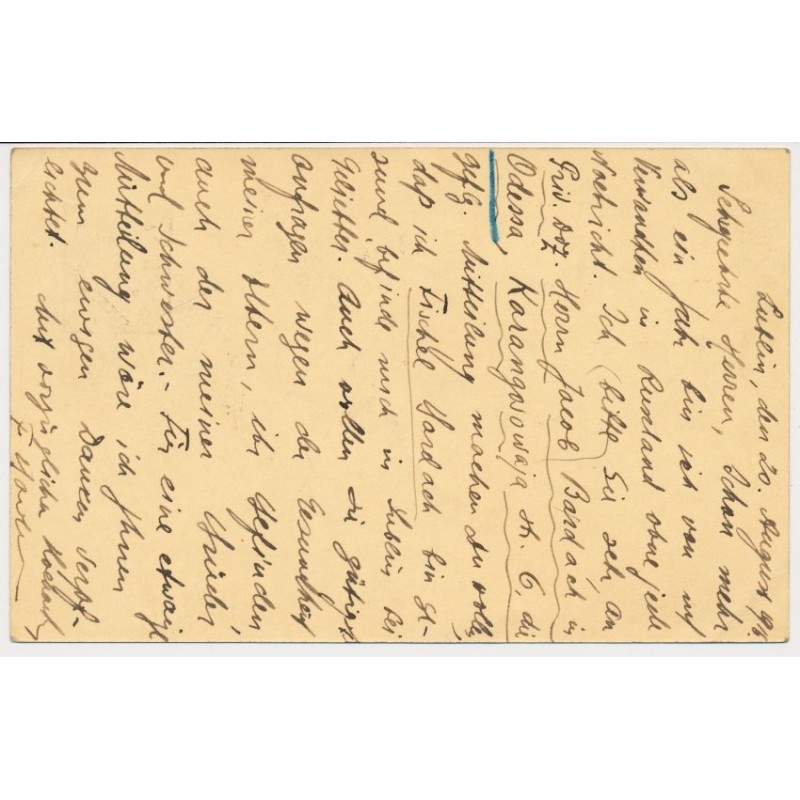 Lublin, den 20. August 916
Sehrgeehrte Herren, Schon mehr
als ein Jahr bin ich von
Verwandten in Russland ohne jede
Nachricht. Ich bitte Sie sehr an
Priv. Doz. Herrn Jacob Bardach in
Odessa, Karangosowaja st. 6, die
gefl. Mitteilung machen zu wollen,
daß ich Fischel Bardach bin ge-
sund, befinde mich in Lublin bei
Geliebten. Auch wollen Sie gütigst
anfragen wegen der Gesundheit
meiner Eltern, ihr Befinden
auch der meiner Brüder,
und Schwester. - Für eine etwaige
Mitteilung wäre ich Ihnen
zum ewigen Danken verpf-
lichtet. Mit vorzüglicher Hochacht.